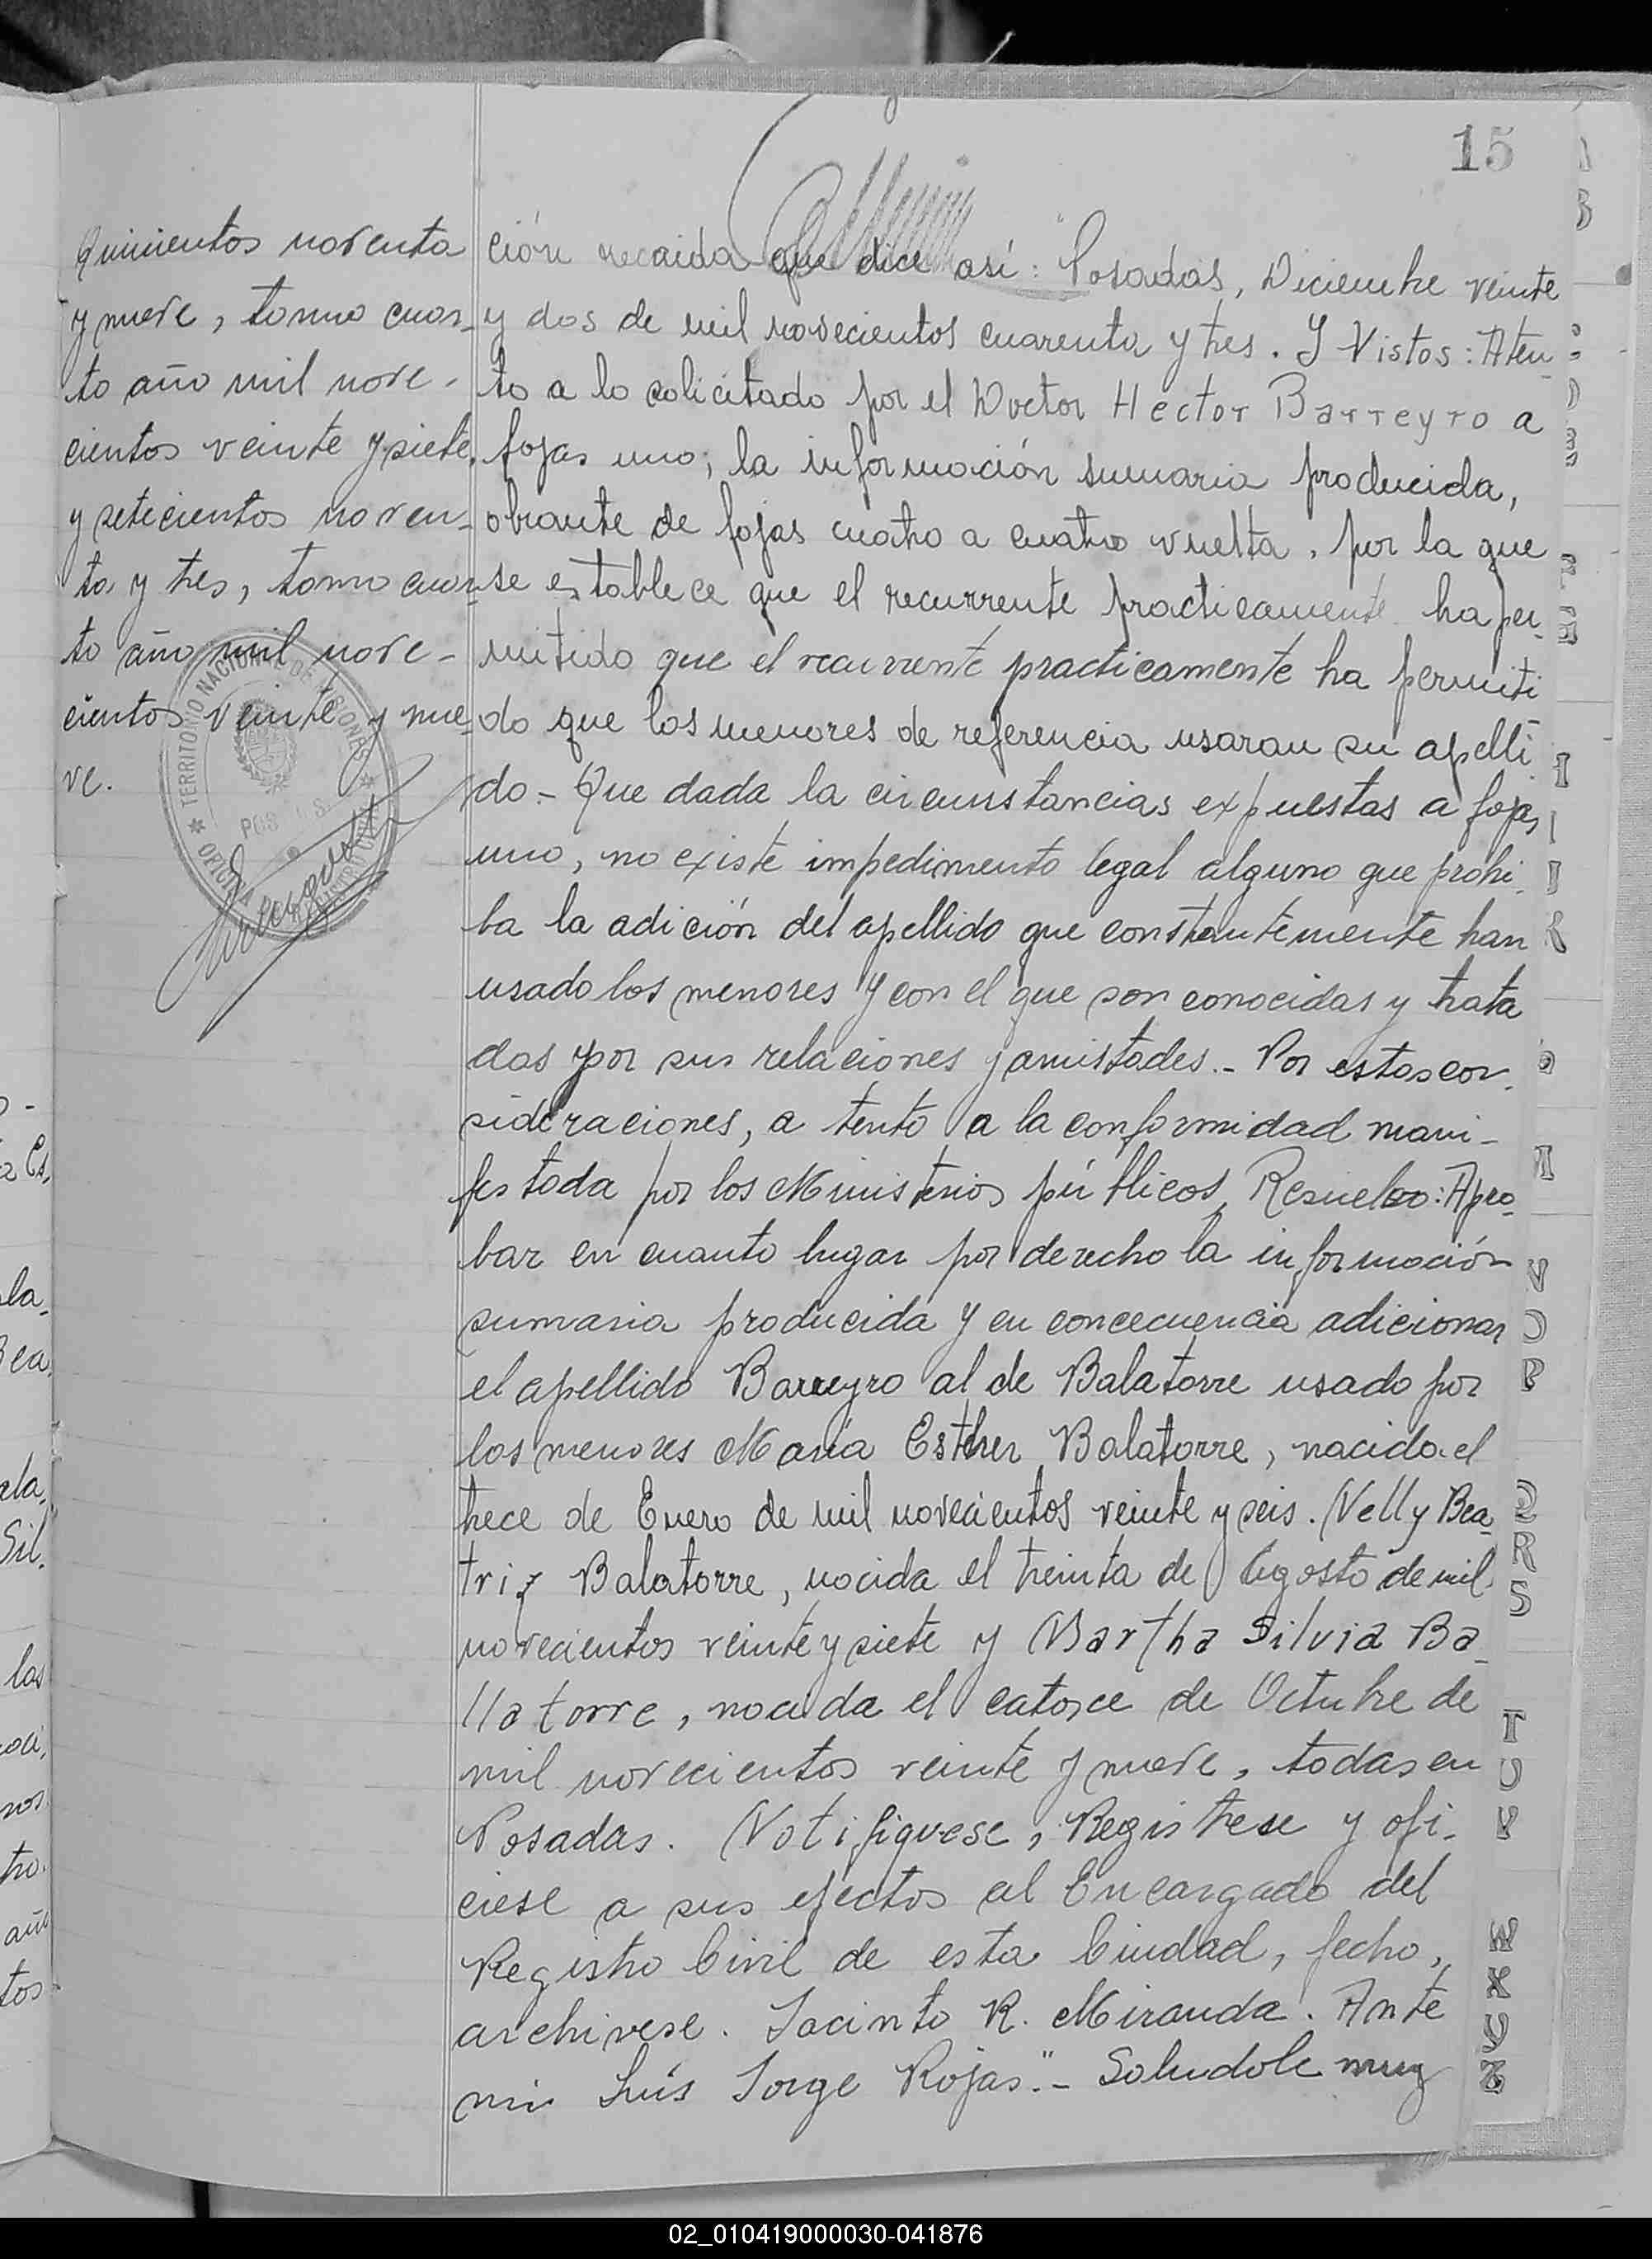 15
Quinientos noventa
y nueve, tomo cuar-
to año mil nove-
cientos veinte y siete,
y setecientos noven-
ta y tres, tomo cuar-
to año mil nove-
cientos veinte y nue-
ve.
TERRITORIO NACIONAL DE MISIONES
OFICINA
ción recaida que dice así: "Posadas, Diciembre veinte
y dos de mil novecientos cuarenta y tres. Y Vistos: Aten-
to a lo solicitado por el Doctor Hector Barreyro a
fojas uno; la información sumaria producida,
obrante de fojas cuatro a cuatro vuelta, por la que
se establece que el recurrente practicamente ha per-
mitido que el recurrente practicamente ha permiti
do que los menores de referencia usaran su apelli
do.- Que dada la circunstancias expuestas a fojas
uno, no existe impedimento legal alguno que prohi-
ba la adición del apellido que constantemente han
usado los menores y con el que son conocidas y trata
das por sus relaciones y amistades.- Por estas con-
sideraciones, a tento a la conformidad mani-
festada por los Ministerios públicos, Resuelvo: Apro-
bar en cuanto lugar por derecho la información
sumaria producida y en concecuencia adicionar
el apellido Barreyro al de Balatorre usado por
las menores María Esther Balatorre, nacida el
trece de Enero de mil novecientos veinte y seis. Nelly Bea-
triz Balatorre, nacida el treinta de Agosto de mil
novecientos veinte y siete y Martha Silvia Ba-
llatorre, nacida el catorce de Octubre de
mil novecientos veinte y nueve, todas en
Posadas. Notifiquese, Registrese y ofi-
ciese a sus efectos al Encargado del
Registro Civil de esta Ciudad, fecho,
archivese. Jacinto R. Miranda. Ante
mi Luís Jorge Rojas".- Saludole muy
02_010419000030-041876